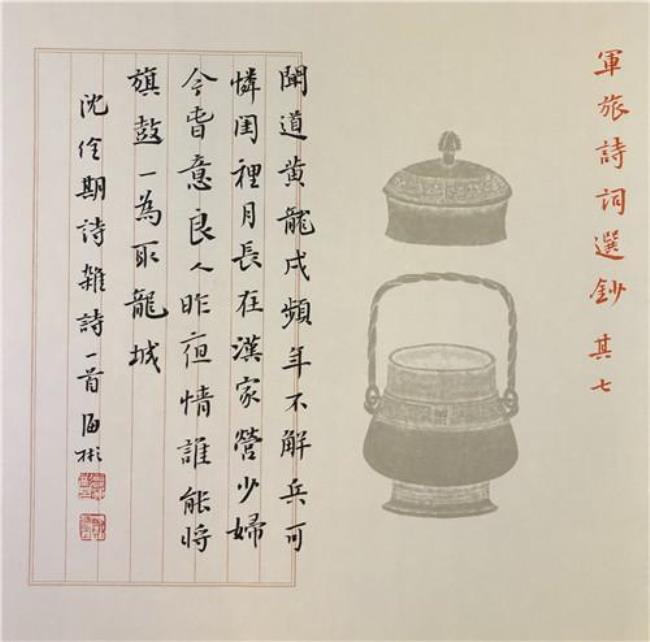 軍旅詩詞選鈔 其七
聞道黄龍戍頻年不解兵可
憐閨裡月長在漢家營少婦
今旾意良人昨夜情誰能将
旗鼓一為取龍城
沈佺期詩雜詩一首 海彬